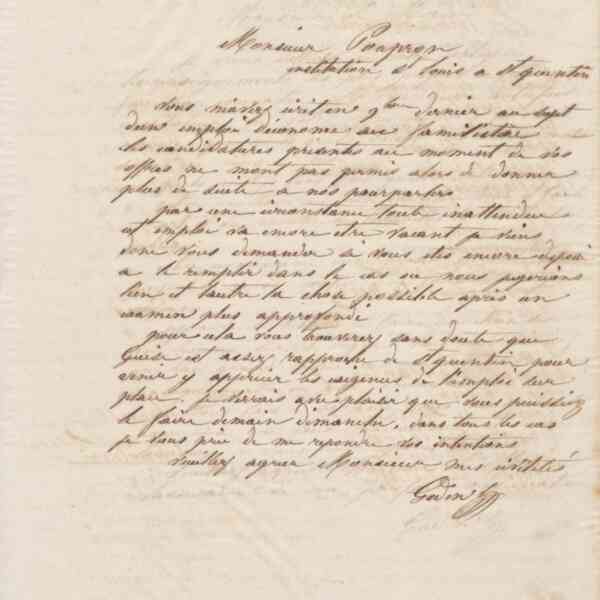 Monsieur Poupron
institution St Louis a St quentin
vous mavez ecrit en 9bre dernier au sujet
dun emploi déconome au familistère
les candidatures présentes au moment de vos
offres ne mont pas permis alors de donner
plus de suite a nos pourparlers
par une circonstance toute inattendue
cet emploi va encore etre vacant je viens
donc vous demander si vous etes encore disposé
a le remplir dans le cas ou nous jugerions
lun et lautre la chose possible après un
examen plus approfondi
pour cela vous trouverez sans doute que
Guise est assez rapproché de St quentin pour
venir y apprécier les exigences de lemploi sur
place, je verrais avec plaisir que vous puissiez
le faire demain dimanche, dans tous les cas
je vous prie de me repondre vos intentions
veuillez agréer Monsieur mes civilités
Godin